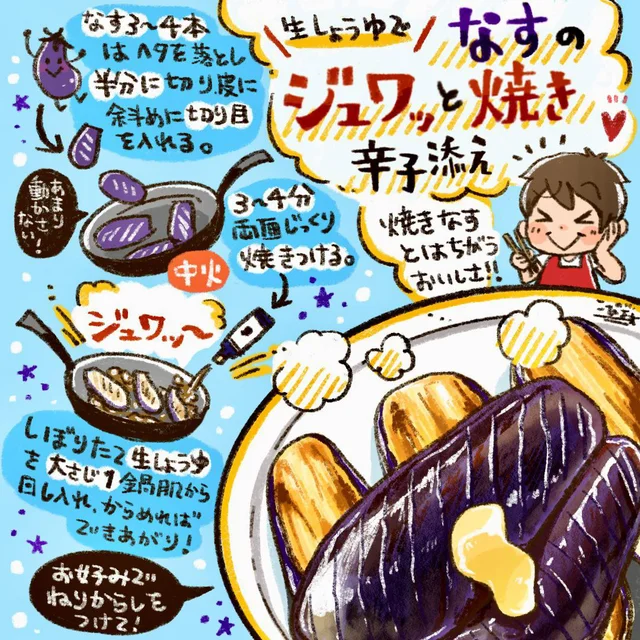 生しょうゆで
なすの
ジュワッと焼き
辛子添え
なす3〜4本
はヘタを落とし
半分に切り皮に
斜めに切り目
を入れる。
あまり
動かさ
ない!
3〜4分
両面じっくり
焼きつける。
中火
焼きなす
とはちがう
おいしさ!!
ジュワッ〜
しぼりたて生しょうゆ
を大さじ1全鍋肌から
回し入れ、からめれば
できあがり!
お好みで
ねりからしを
つけて!